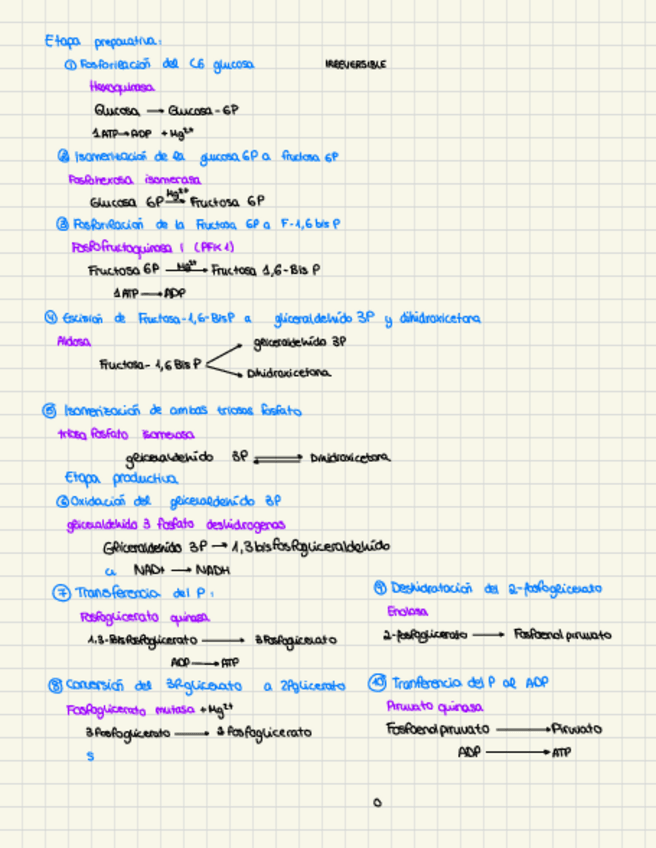 Etapa preparativa:
① Fosforilación del C6 glucosa IRREVERSIBLE
Hexoquinasa
Glucosa → Glucosa-6P
1ATP→ADP +Mg²⁺
② Isomerización de la glucosa 6P a fructosa 6P
Fosfohexosa isomerasa
Glucosa 6P Mg²⁺→ Fructosa 6P
③ Fosforilación de la Fructosa 6P a F-1,6 bis P
Fosfofructoquinasa 1 (PFK1)
Fructosa 6P Mg²⁺→ Fructosa 1,6-Bis P
1ATP → ADP
④ Escisión de Fructosa-1,6-BisP a gliceraldehído 3P y dihidroxicetona
Aldosa
gliceraldehído 3P
Fructosa-1,6 Bis P
Dihidroxicetona
⑤ Isomerización de ambas triosas fosfato
triosa fosfato isomerasa
gliceraldehído 3P ⇌ Dihidroxicetona
Etapa productiva
⑥ Oxidación del gliceraldehído 3P
gliceraldehído 3 fosfato deshidrogenas
Gliceraldehído 3P → 1,3 bisfosfogliceraldehído
NAD+ → NADH
⑦ Transferencia del P:
Fosfoglicerato quinasa
1,3-Bisfosfoglicerato → 3 Fosfoglicerato
ADP → ATP
⑧ Conversión del 3P-glicerato a 2Pglicerato
Fosfoglicerato mutasa +Mg²⁺
3 Fosfoglicerato → 2 Fosfoglicerato
S
⑨ Deshidratación del 2-fosfoglicerato
Enolasa
2-fosfoglicerato → Fosfoenol piruvato
⑩ Tranferencia del P al ADP
Piruvato quinasa
Fosfoenol piruvato → Piruvato
ADP → ATP
o